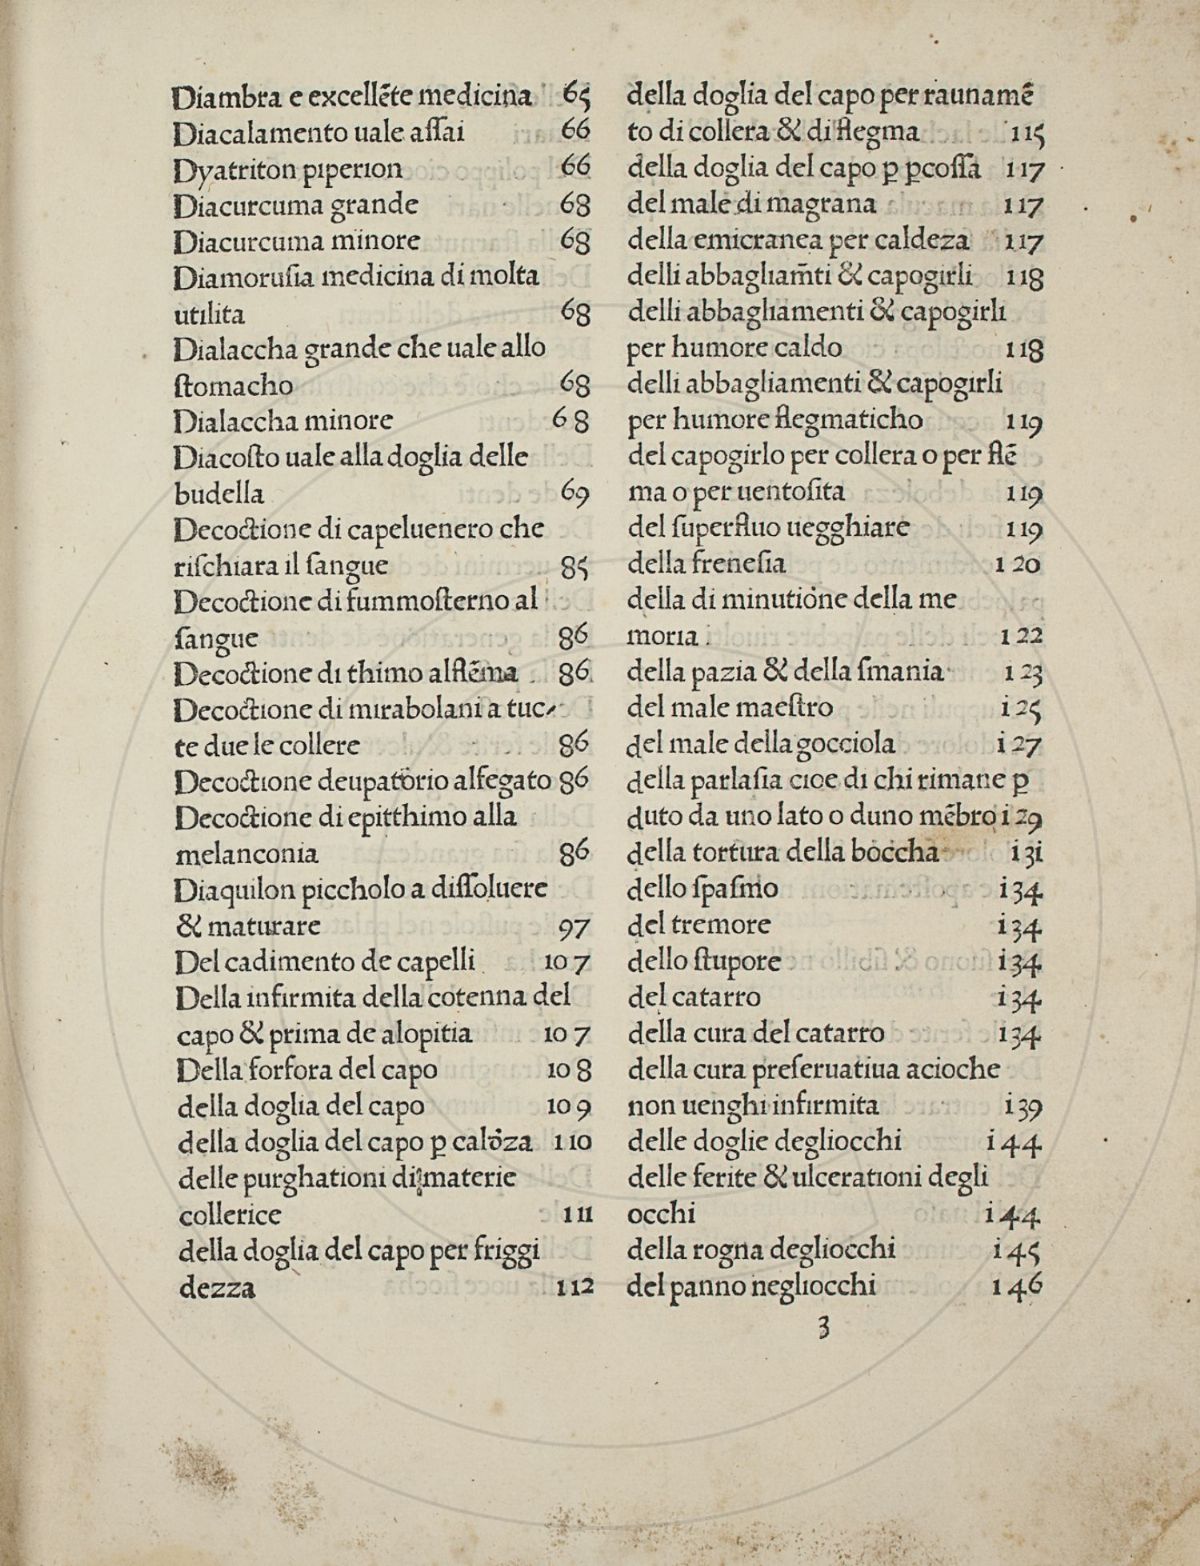 Diambra e excellēte medicina 65
Diacalamento uale aſſai 66
Dyatriton piperion 66
Diacurcuma grande 68
Diacurcuma minore 68
Diamoruſia medicina di molta
utilita 68
Dialaccha grande che uale allo
ſtomacho 68
Dialaccha minore 68
Diacoſto uale alla doglia delle
budella 69
Decoctione di capeluenero che
riſchiara il ſangue 85
Decoctione di fummoſterno al
ſangue 86
Decoctione di thimo alflēma 86
Decoctione di mirabolani a tuc-
te due le collere 86
Decoctione deupatorio alfegato 86
Decoctione di epitthimo alla
melanconia 86
Diaquilon piccholo a diſſoluere
& maturare 97
Del cadimento de capelli 107
Della infirmita della cotenna del
capo & prima de alopitia 107
Della forfora del capo 108
della doglia del capo 109
della doglia del capo ꝑ caldeza 110
delle purghationi di materie
collerice 111
della doglia del capo per friggi
dezza 112
della doglia del capo per raunamē
to di collera & di flegma 115
della doglia del capo ꝑ ꝑcoſſa 117
del male di magrana 117
della emicranea per caldeza 117
delli abbagliam̄ti & capogirli 118
delli abbagliamenti & capogirli
per humore caldo 118
delli abbagliamenti & capogirli
per humore flegmaticho 119
del capogirlo per collera o per flē
ma o per uentoſita 119
del ſuperfluo uegghiare 119
della freneſia 120
della di minutione della me
moria 122
della pazia & della ſmania 123
del male maeſtro i25
del male della gocciola i27
della parlaſia cioe di chi rimane ꝑ
duto da uno lato o duno mēbro i29
della tortura della boccha i3i
dello ſpaſmo i34
del tremore i34
dello ſtupore i34
del catarro i34
della cura del catarro i34
della cura preſeruatiua acioche
non uenghi infirmita i39
delle doglie degliocchi i44
delle ferite & ulcerationi degli
occhi i44
della rogna degliocchi i45
del panno negliocchi 146
3